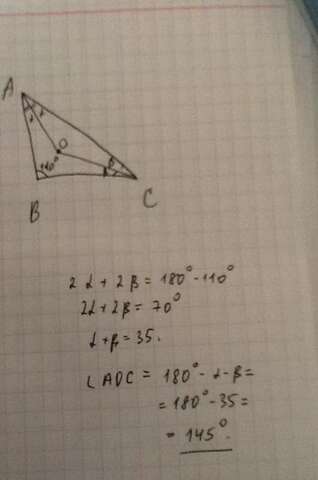 A
α α
O
110°
β
β
B
C
2α + 2β = 180° - 110°
2α + 2β = 70°
α + β = 35.
∠AOC = 180° - α - β =
= 180° - 35 =
= 145°.